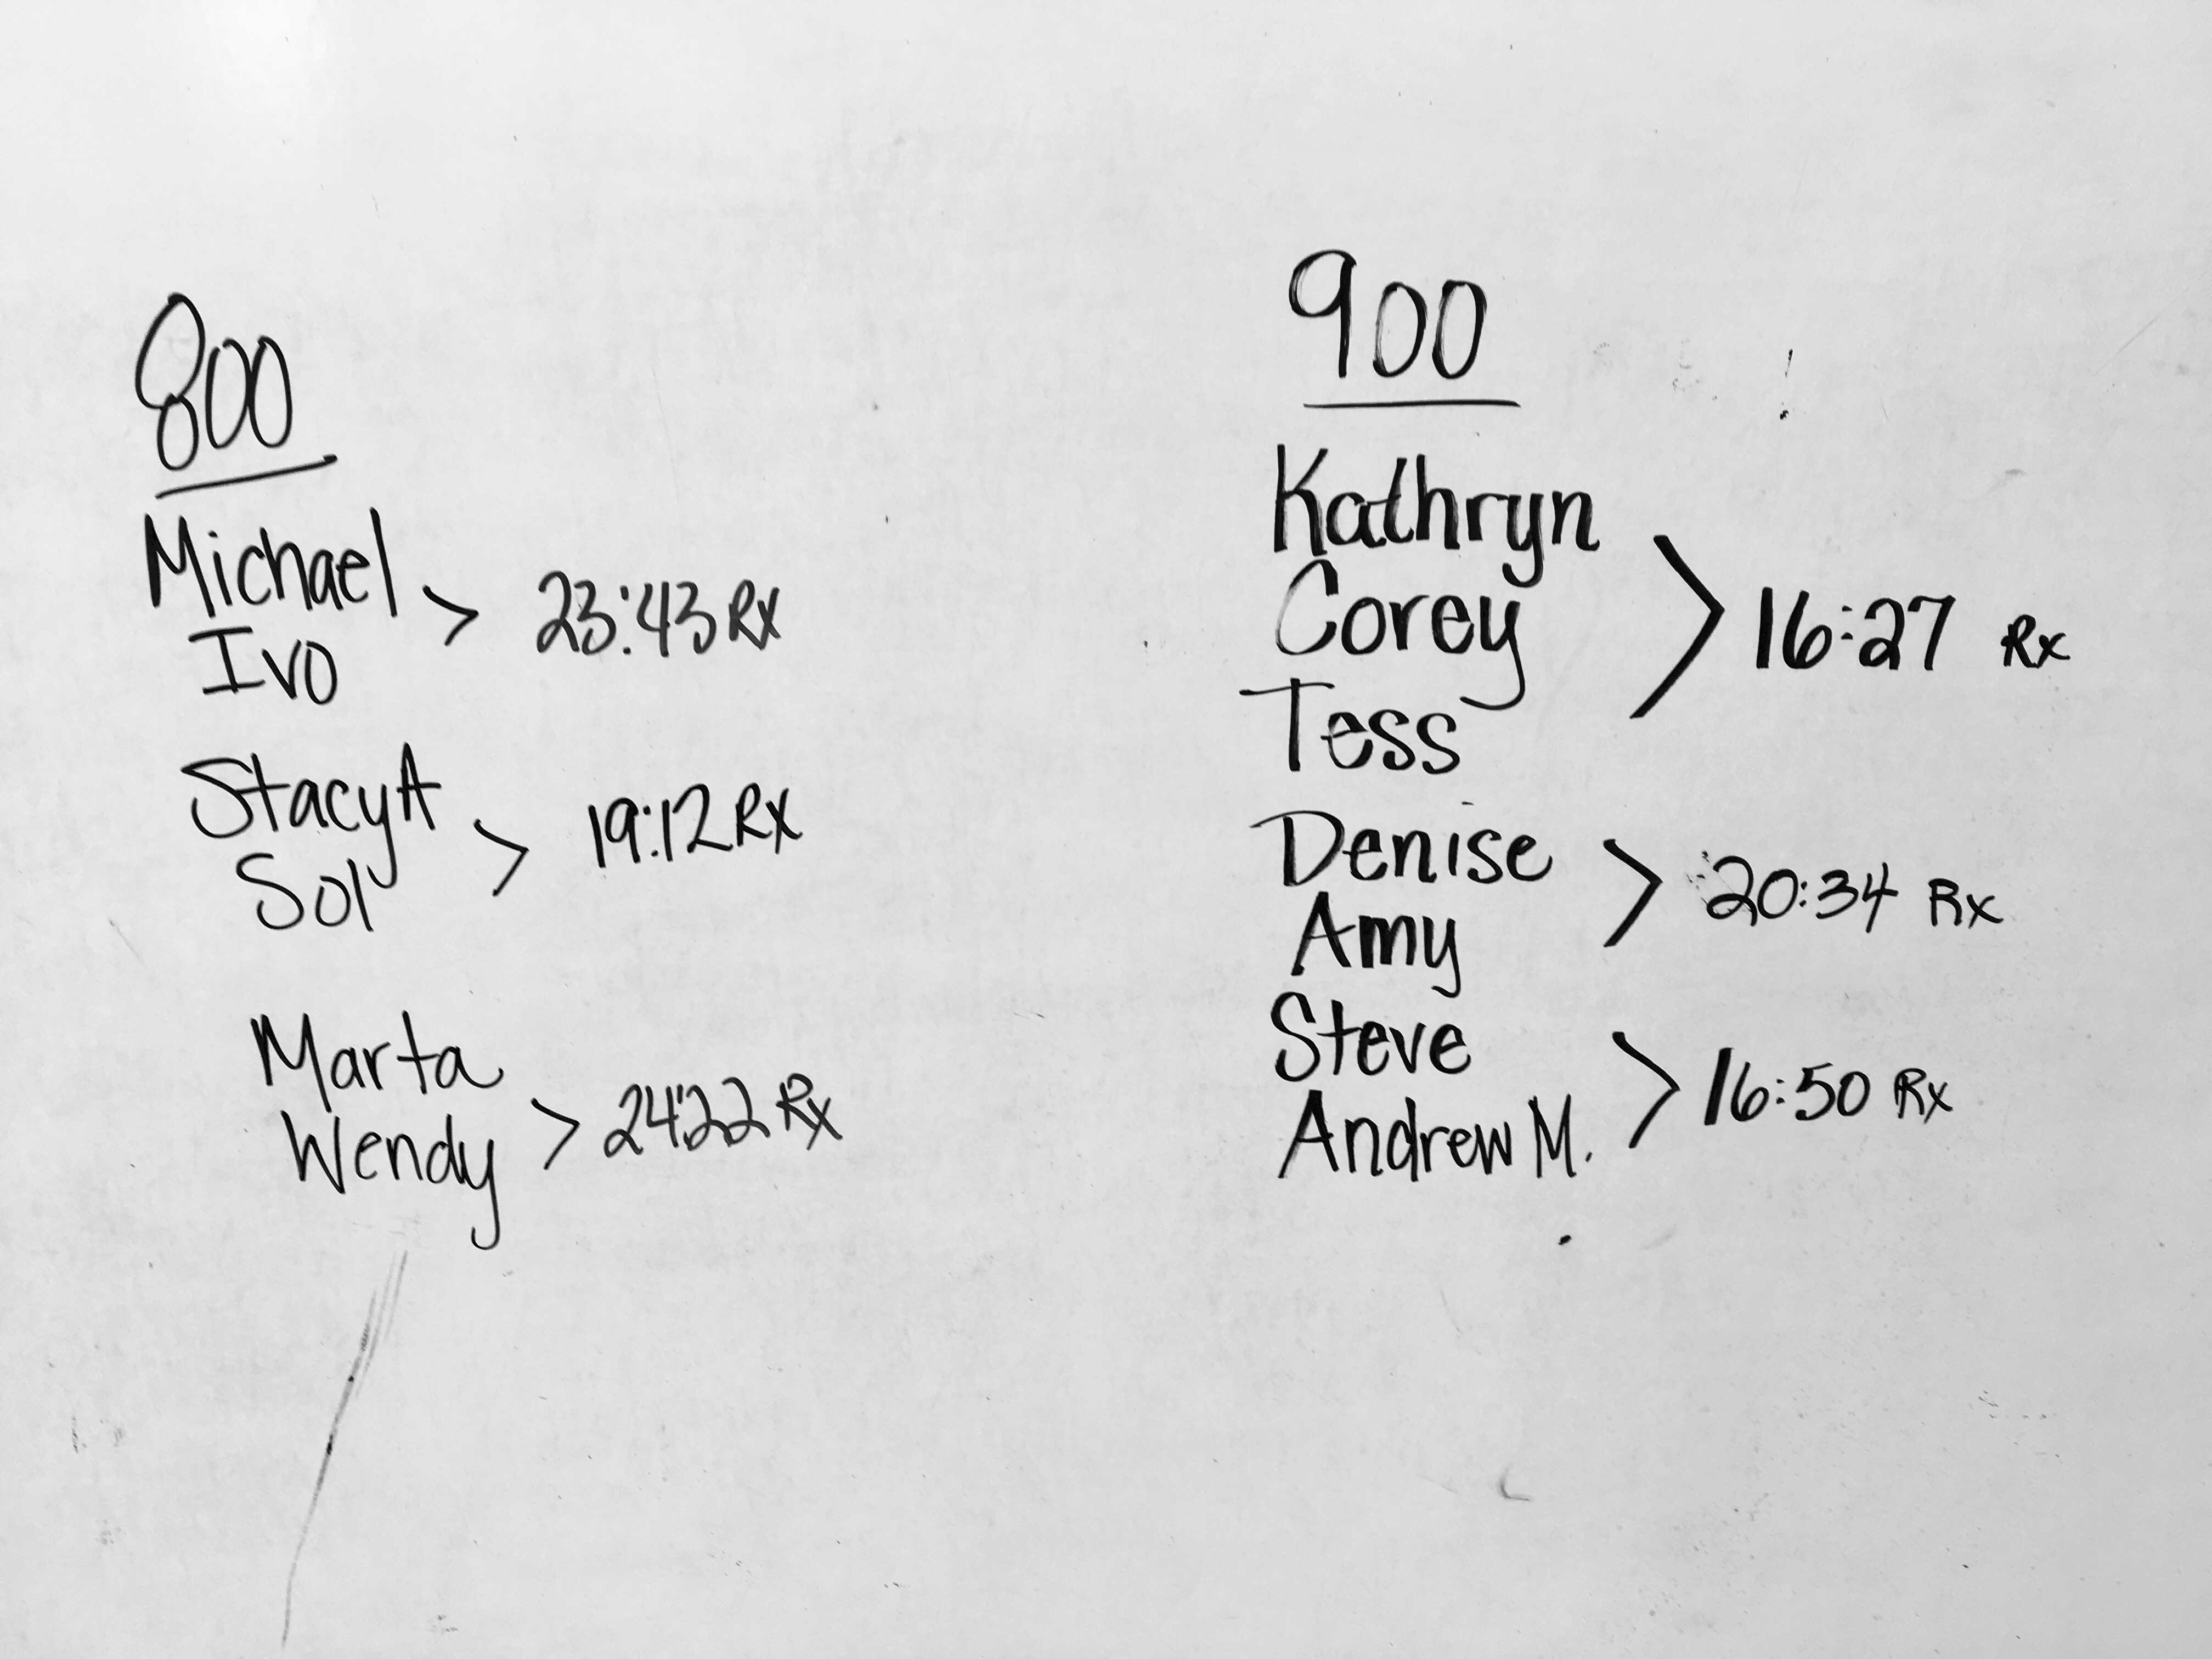 800
Michael
Ivo
> 23:43 Rx
Stacy A
Sol
> 19:12 Rx
Marta
Wendy
> 24:22 Rx
900
Kathryn
Corey
Tess
> 16:27 Rx
Denise
Amy
> 20:34 Rx
Steve
Andrew M.
> 16:50 Rx